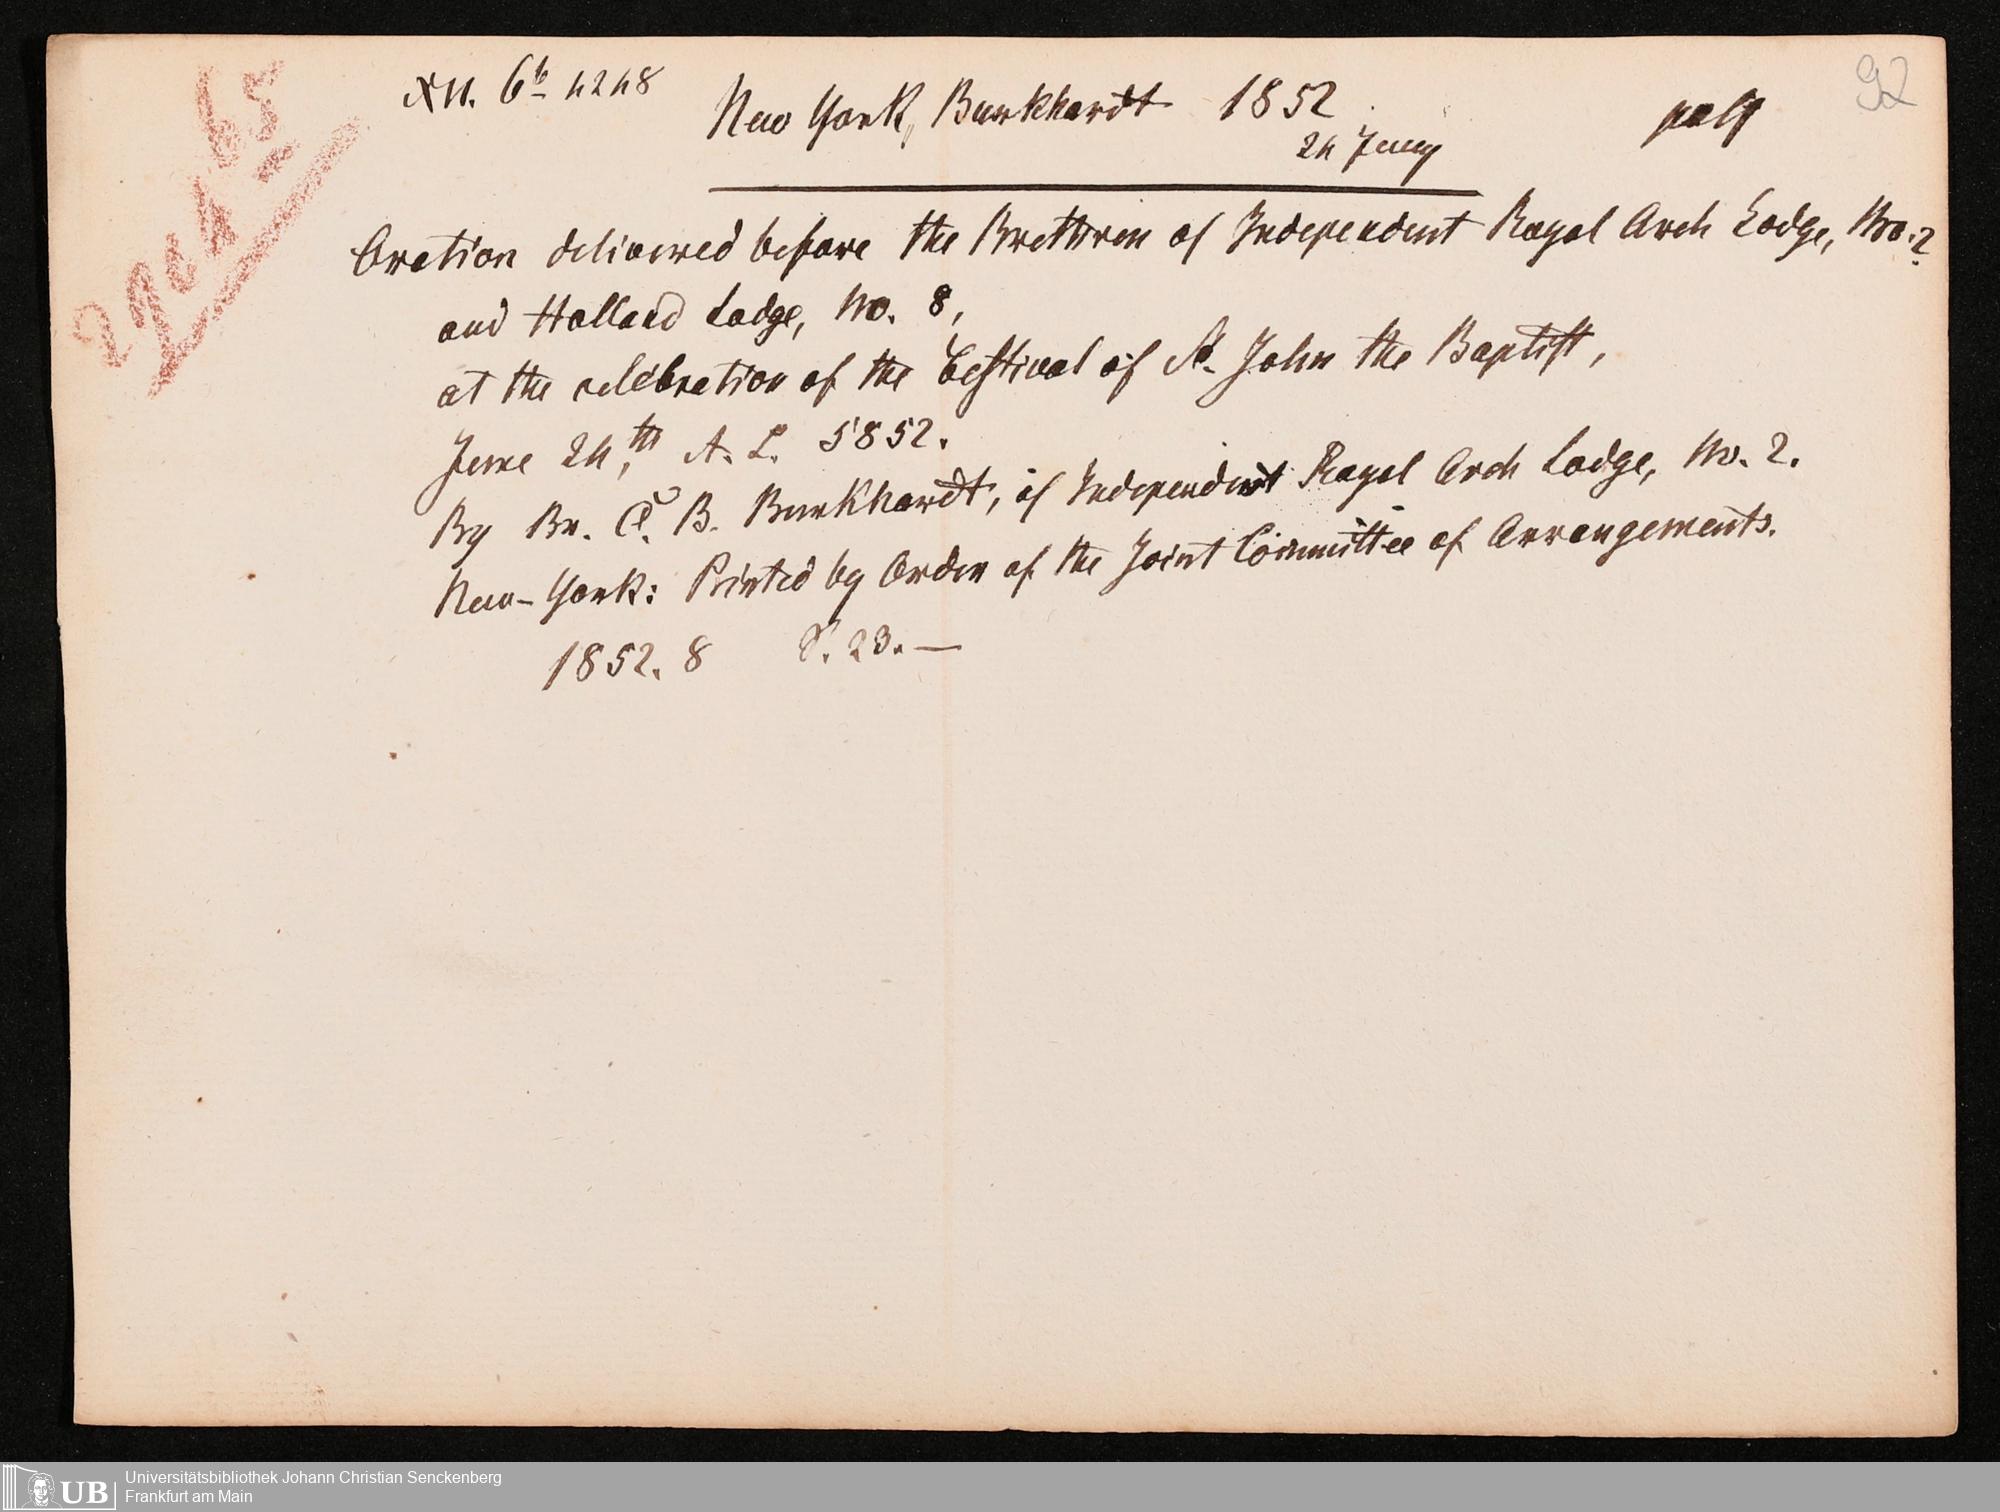 92
XII. 6b 4248
New York, Burkhardt 1852
24 Juny
Oration delivered before the Brethren of Independent Royal Arch Lodge, No. 2
and Holland Lodge, No. 8,
at the celebration of the Festival of St. John the Baptist,
June 24,th A. L. 5852.
By Br. C. B. Burkhardt, of Independent Royal Arch Lodge, No. 2.
New-York: Printed by Order of the Joint Committee of Arrangements.
1852. 8 S. 23. —
UB
Universitätsbibliothek Johann Christian Senckenberg
Frankfurt am Main